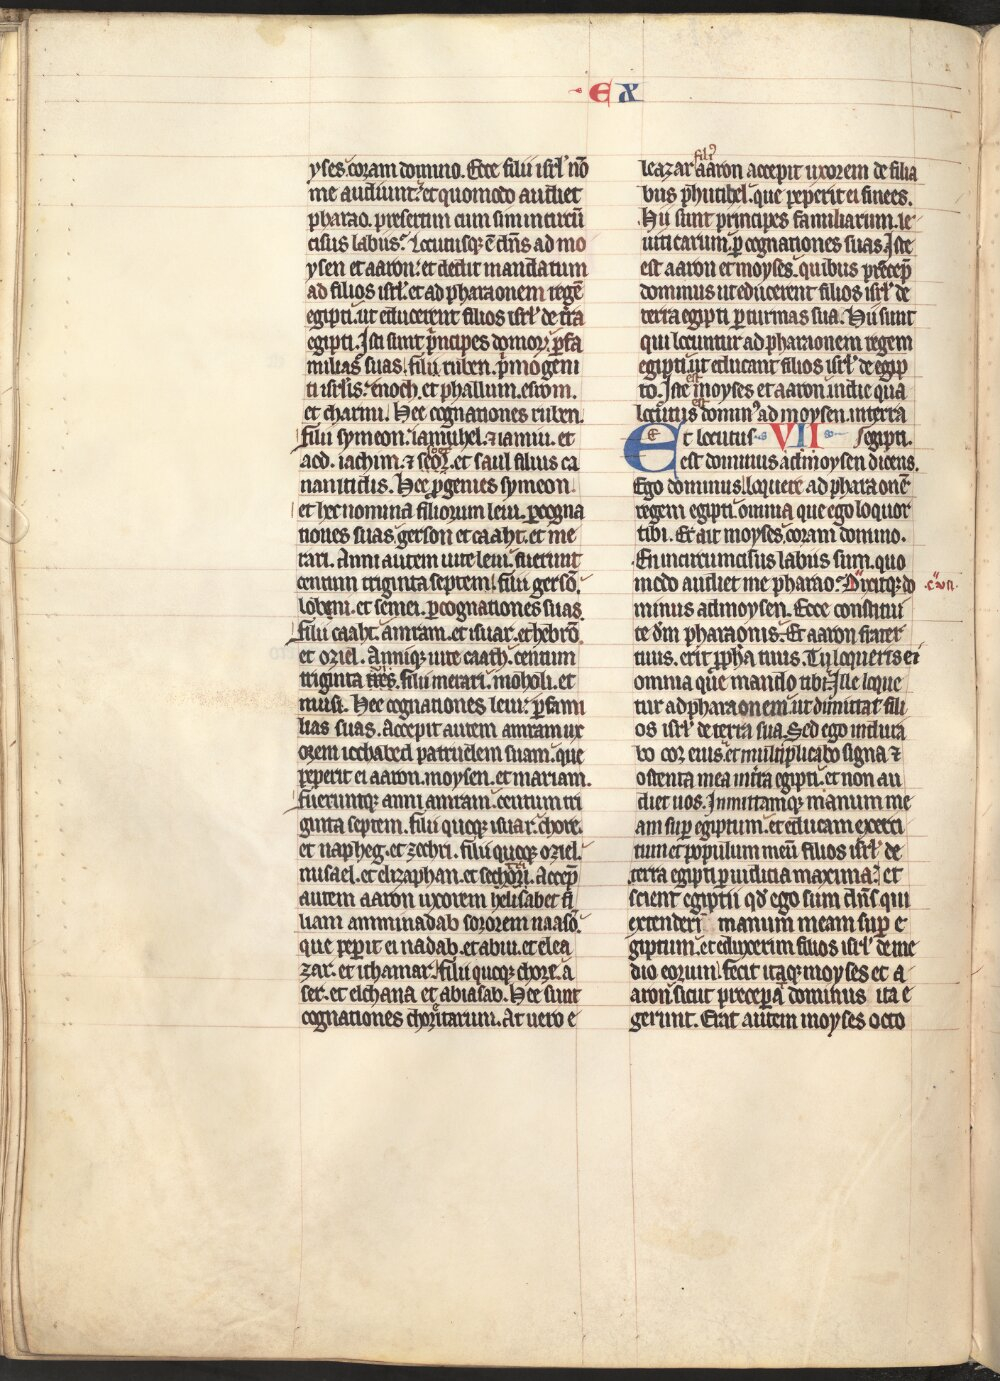 EX
yses coram domino. Ecce filii isrl' nō
me audiunt: et quomodo audiet
pharao. presertim cum sim incircū
cisus labiis? Locutusq; ē dn̄s ad mo
ysen et aaron: et dedit mandatum
ad filios isrl'. et ad pharaonem regē
egipti. ut educerent filios isrl' de t̄ra
egipti. Isti sunt p̄ncipes domoꝝ ꝑ fa
milias suas. filii ruben. p̄mogeni
ti isrl'is: enoch. et phallum. esrom.
et charmi. Hee cognationes ruben.
filii symeon. iamuhel. ⁊ iamin. et
aod. iachim. ⁊ seor. et saul filius ca
nanitidis. Hee ꝓgenies symeon.
et hec nomina filiorum leui. ꝑ cogna
tiones suas. gerson et caaht. et me
rari. Anni autem uite leui. fuerunt
centum triginta septem. filii gersō.
lobeni. et semei. ꝑ cognationes suas.
filii caaht. amram. et isuar. et hebrō
et oziel. Anniq; uite caath. centum
triginta tres. filii merari. moholi. et
musi. Hee cognationes leui: ꝑ fami
lias suas. Accepit autem amram ux
orem iochabed patruelem suam. que
peperit ei aaron. moysen. et mariam.
fueruntq; anni amram. centum tri
ginta septem. filii quoq; isuar. chore.
et napheg. et zechri. filii quoq; oziel.
misael. et elizaphan. et sechori. Accep̄
autem aaron uxorem helisabet fi
liam amminadab sororem naasō.
que peꝑit ei nadab. et abiu. et elea
zar. et ithamar. filii quoq; chore. a
ser. et elchana et abiasab. Hee sunt
cognationes choritarum. At uero e
filiꝰ
leazar aaron accepit uxorem de filia
bus phutihel. que peperit ei finees.
Hii sunt principes familiarum. le
uiticarum ꝑ cognationes suas. Iste
est aaron et moyses. quibus precep̄
dominus ut educerent filios isrl' de
terra egipti ꝑ turmas sua. Hii sunt
qui locuntur ad pharaonem regem
egipti ut educant filios isrl' de egip
est
to. Iste moyses et aaron. in die qua
est
locutus dominꝰ ad moysen. in terra
Et locutus VII egipti.
est dominus ad moysen dicens.
Ego dominus. loquere ad pharaonē
regem egipti. omnia que ego loquor
tibi. Et ait moyses. coram domino.
En incircumcisus labiis sum. quo
modo audiet me pharao? Dixitq; do
minus ad moysen. Ecce constitui
te dm̄ pharaonis. Et aaron frater
tuus. erit ꝓpha tuus. Tu loqueris ei
omnia que mando tibi. Ille loque
tur ad pharaonem ut dimittat fili
os isrl' de terra sua. Sed ego indura
bo cor eius. et multiplicabo signa ⁊
ostenta mea in t̄ra egipti. et non au
diet uos. Inmittamq; manum me
am suꝑ egiptum. et educam exerci
tum et populum meū filios isrl' de
terra egipti ꝑ iudicia maxima. et
scient egiptii qd' ego sum dn̄s qui
extenderi manum meam suꝑ e
giptum. et eduxerim filios isrl' de me
dio eorum. fecit itaq; moyses et a
aron sicut precepat dominus ita e
gerunt. Erat autem moyses octo